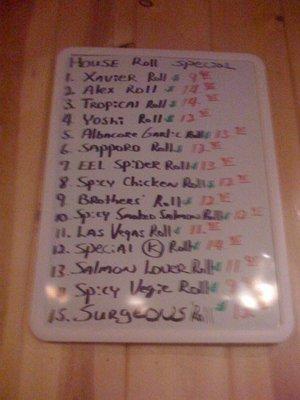 HOUSE Roll special
1. XAVIER Roll $ 9.
2. Alex Roll $ 14.
3. TROPICAl Roll $ 14.
4. Yoshi Roll $ 12
5. Albacore Garlic Roll $ 13.
6. SAPPORO Roll $ 12.
7. EEL SpiDER Roll $ 13.
8. Spicy Chicken Roll $ 12
9. Brothers' Roll $ 12
10. Spicy Smoked Salmon Roll $ 12
11. LAS VEGAS Roll $ 11.
12. Special K Roll $ 14
13. SALMON LOVER Roll $ 11
Spicy Vegie Roll $
15. SURGEOUS Roll $